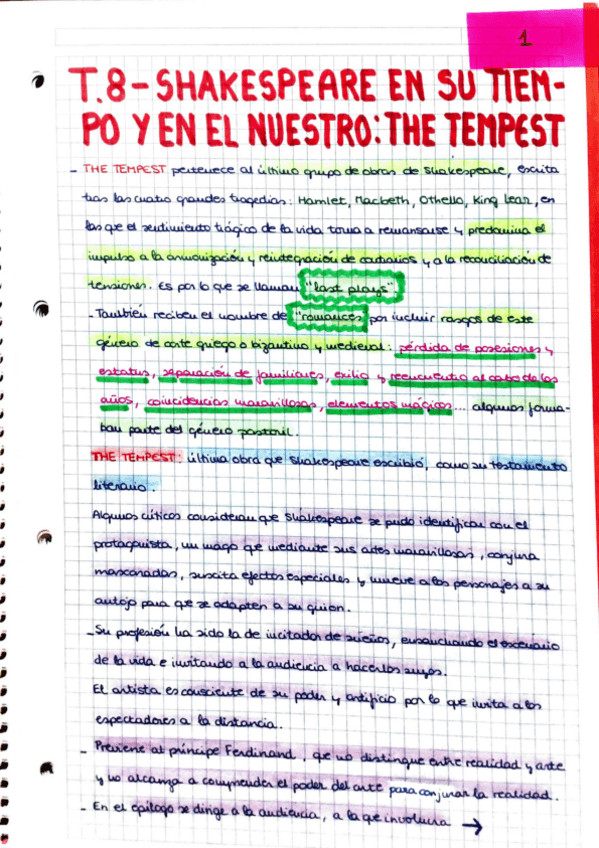 1
T.8-SHAKESPEARE EN SU TIEM-
PO Y EN EL NUESTRO: THE TEMPEST
- THE TEMPEST pertenece al último grupo de obras de Shakespeare, escrita
tras las cuatro grandes tragedias: Hamlet, Macbeth, Othello, King Lear, en
las que el sentimiento trágico de la vida torna a remansarse y predomina el
impulso a la armonización y reintegración de contrarios y a la reconciliación de
tensiones. Es por lo que se llaman "last plays".
- También reciben el nombre de "romances" por incluir rasgos de este
género de corte griego o bizantino y medieval: pérdida de posesiones y
estatus, separación de familiares, exilio y reencuentro al cabo de los
años, coincidencias maravillosas, elementos mágicos... algunos forma-
ban parte del género pastoril.
THE TEMPEST: última obra que Shakespeare escribió, como su testamento
literario.
Algunos críticos consideran que Shakespeare se pudo identificar con el
protagonista, un mago qe mediante sus artes maravillosas, conjura
mascaradas, suscita efectos especiales y mueve a los personajes a su
antojo para que se adapten a su guion.
- Su profesión ha sido la de incitador de sueños, ensanchando el escenario
de la vida e invitando a la audiencia a hacerlos suyos.
El artista es consciente de su poder y artificio por lo que invita a los
espectadores a la distancia.
- Previene al príncipe Ferdinand, qe no distingue entre realidad y arte
y no alcanza a comprender el poder del arte para conjurar la realidad.
- En el epílogo se dirige a la audiencia, a la que involucra →